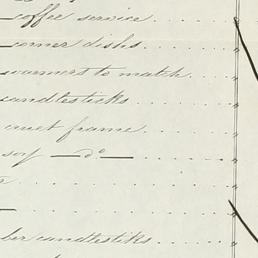 coffee service
corner dishs
warmers to match
candlesticks
cruet frame
do
candlestiks